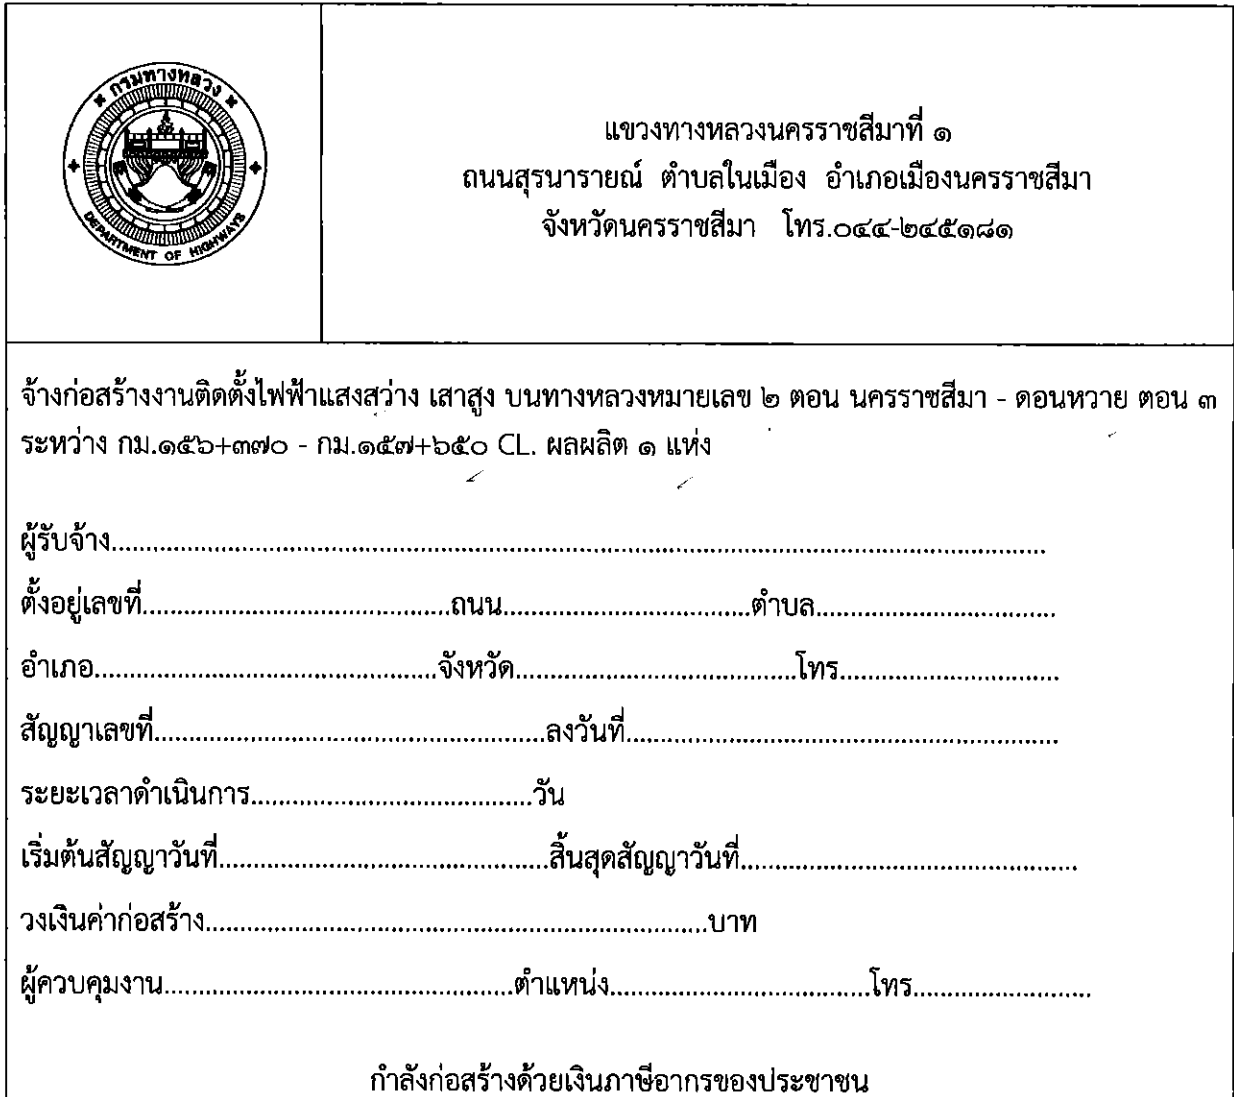 กรมทางหลวง
DEPARTMENT OF HIGHWAYS
แขวงทางหลวงนครราชสีมาที่ ๑
ถนนสุรนารายณ์ ตำบลในเมือง อำเภอเมืองนครราชสีมา
จังหวัดนครราชสีมา โทร.๐๔๔-๒๔๕๑๘๑
จ้างก่อสร้างงานติดตั้งไฟฟ้าแสงสว่าง เสาสูง บนทางหลวงหมายเลข ๒ ตอน นครราชสีมา - ดอนหวาย ตอน ๓
ระหว่าง กม.๑๕๖+๓๗๐ - กม.๑๕๗+๖๕๐ CL. ผลผลิต ๑ แห่ง
ผู้รับจ้าง................................................................................
ตั้งอยู่เลขที่..............................ถนน..............................ตำบล..............................
อำเภอ..............................จังหวัด..............................โทร..............................
สัญญาเลขที่..............................ลงวันที่..............................
ระยะเวลาดำเนินการ..............................วัน
เริ่มต้นสัญญาวันที่..............................สิ้นสุดสัญญาวันที่..............................
วงเงินค่าก่อสร้าง..............................บาท
ผู้ควบคุมงาน..............................ตำแหน่ง..............................โทร..............................
กำลังก่อสร้างด้วยเงินภาษีอากรของประชาชน